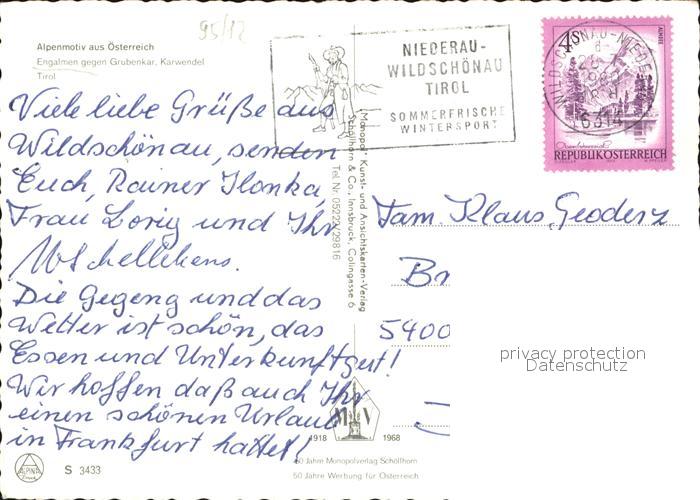 95/12
Alpenmotiv aus Österreich
Engalmen gegen Grubenkar, Karwendel
Tirol
NIEDERAU-
WILDSCHÖNAU
TIROL
SOMMERFRISCHE
WINTERSPORT
WILDSCHÖNAU-NIEDERAU
6314
4
ALMSEE
REPUBLIK ÖSTERREICH
Viele liebe Grüße aus
Wildschönau, senden
Euch, Rainer Ilonka,
Frau Lorig und Ihr
Die Gegend und das
Wetter ist schön, das
Essen und Unterkunft gut!
Wir hoffen daß auch Ihr
einen schönen Urlaub
in Frankfurt hattet!
Monopol, Kunst- und Ansichtskarten-Verlag
Schöllhorn & Co., Innsbruck, Colingasse 6
Tel. Nr. 05222/29816
Fam. Klaus Geodersz
Br
5400
privacy protection
Datenschutz
M V
1918 1968
50 Jahre Monopolverlag Schöllhorn
50 Jahre Werbung für Österreich
ALPINA
S 3433